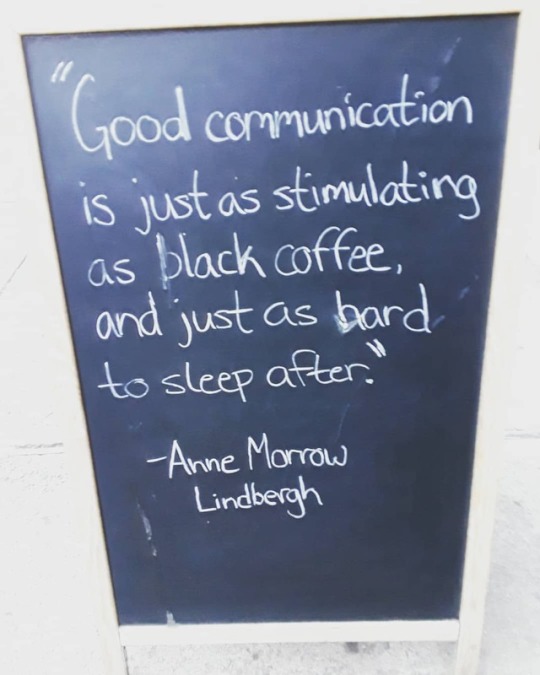 "Good communication
is just as stimulating
as black coffee,
and just as hard
to sleep after."
-Anne Morrow
Lindbergh